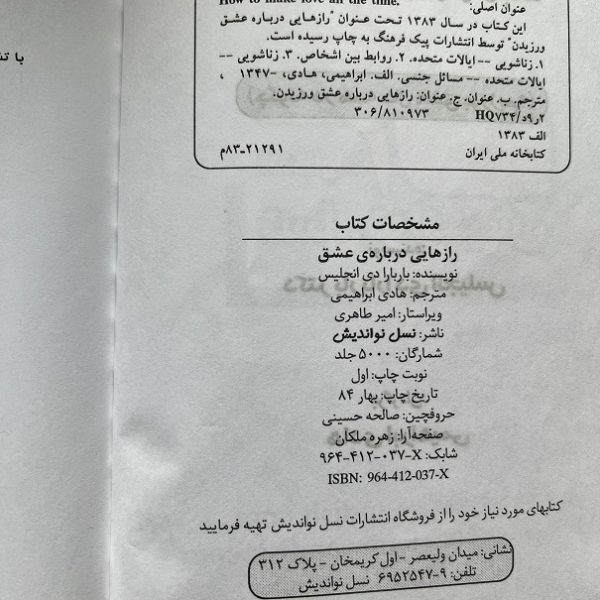 How to make love all the time.
عنوان اصلی:
این کتاب در سال ۱۳۸۳ تحت عنوان "رازهایی درباره عشق
ورزیدن" توسط انتشارات پیک فرهنگ به چاپ رسیده است.
۱. زناشویی -- ایالات متحده. ۲. روابط بین اشخاص. ۳. زناشویی --
ایالات متحده -- مسائل جنسی. الف. ابراهیمی، هادی، -۱۳۴۷ ،
مترجم. ب. عنوان. ج. عنوان: رازهایی درباره عشق ورزیدن.
۲ر۹د/HQ۷۳۴ ۳۰۶/۸۱۰۹۷۳
الف ۱۳۸۳
کتابخانه ملی ایران ۸۳-۲۱۲۹۱م
مشخصات کتاب
رازهایی درباره‌ی عشق
نویسنده: باربارا دی انجلیس
مترجم: هادی ابراهیمی
ویراستار: امیر طاهری
ناشر: نسل نواندیش
شمارگان: ۵۰۰۰ جلد
نوبت چاپ: اول
تاریخ چاپ: بهار ۸۴
حروفچین: صالحه حسینی
صفحه‌آرا: زهره ملکان
شابک: X-۰۳۷-۴۱۲-۹۶۴
ISBN: 964-412-037-X
کتابهای مورد نیاز خود را از فروشگاه انتشارات نسل نواندیش تهیه فرمایید
نشانی: میدان ولیعصر - اول کریمخان - پلاک ۳۱۲
تلفن: ۹-۶۹۵۲۵۴۷ نسل نواندیش